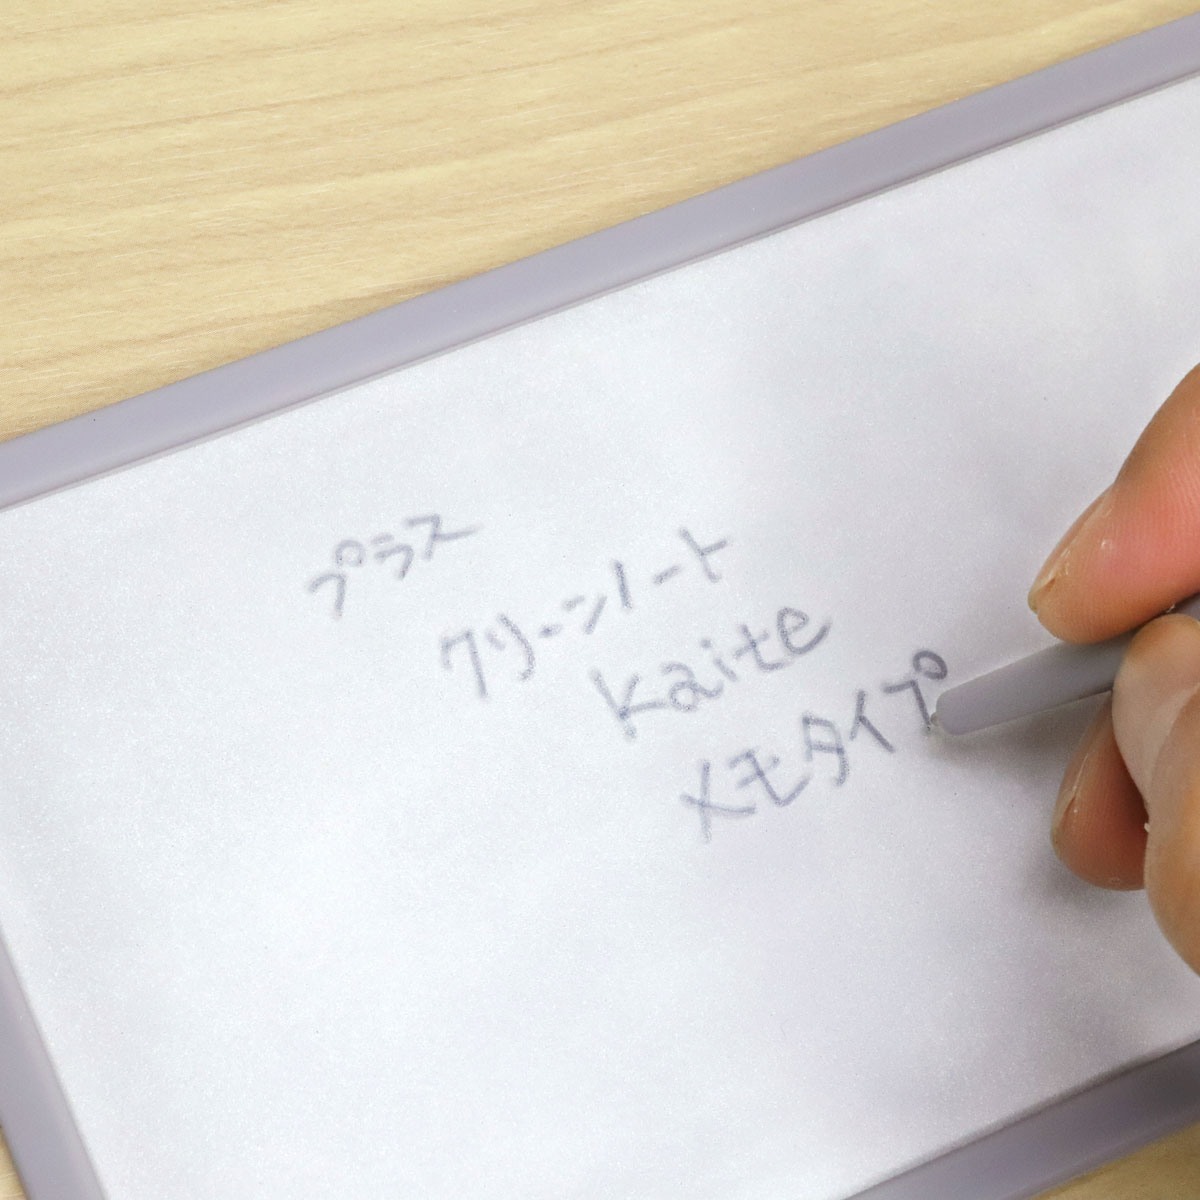 プラス
クリーンノート
kaite
メモタイプ